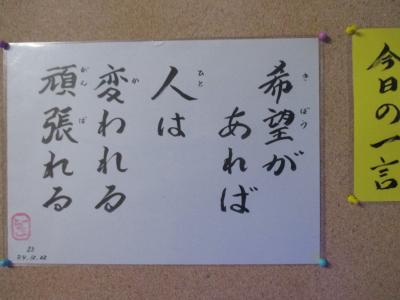 今日の一言
希望が
あれば
人は
変われる
頑張れる
きぼう
ひと
か
がんば
23